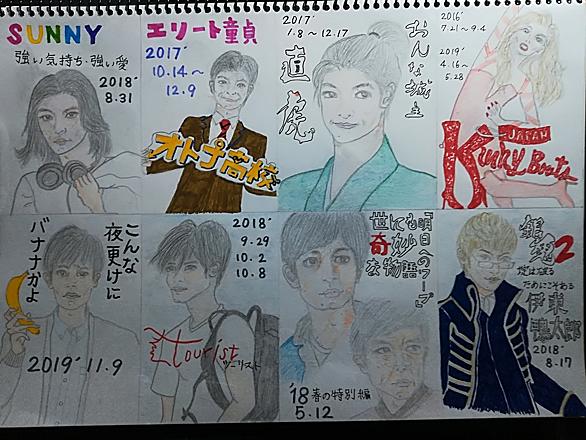 SUNNY
強い気持ち・強い愛
2018'
8.31
エリート童貞
2017'
10.14〜
12.9
オトナ高校
2017'
1.8〜12.17
おんな城主
直虎
2016'
7.21〜9.4
2019'
4.16〜
5.28
JAPAN
Kinky Boots
こんな
夜更けに
バナナかよ
2019' 11.9
2018'
9.29
10.2
10.8
tourist
ツーリスト
世にも
奇妙な
物語
「明日へのワープ」
'18 春の特別編
5.12
銀魂2
掟は破る
ためにこそある
伊東
鴨太郎
2018'
8.17